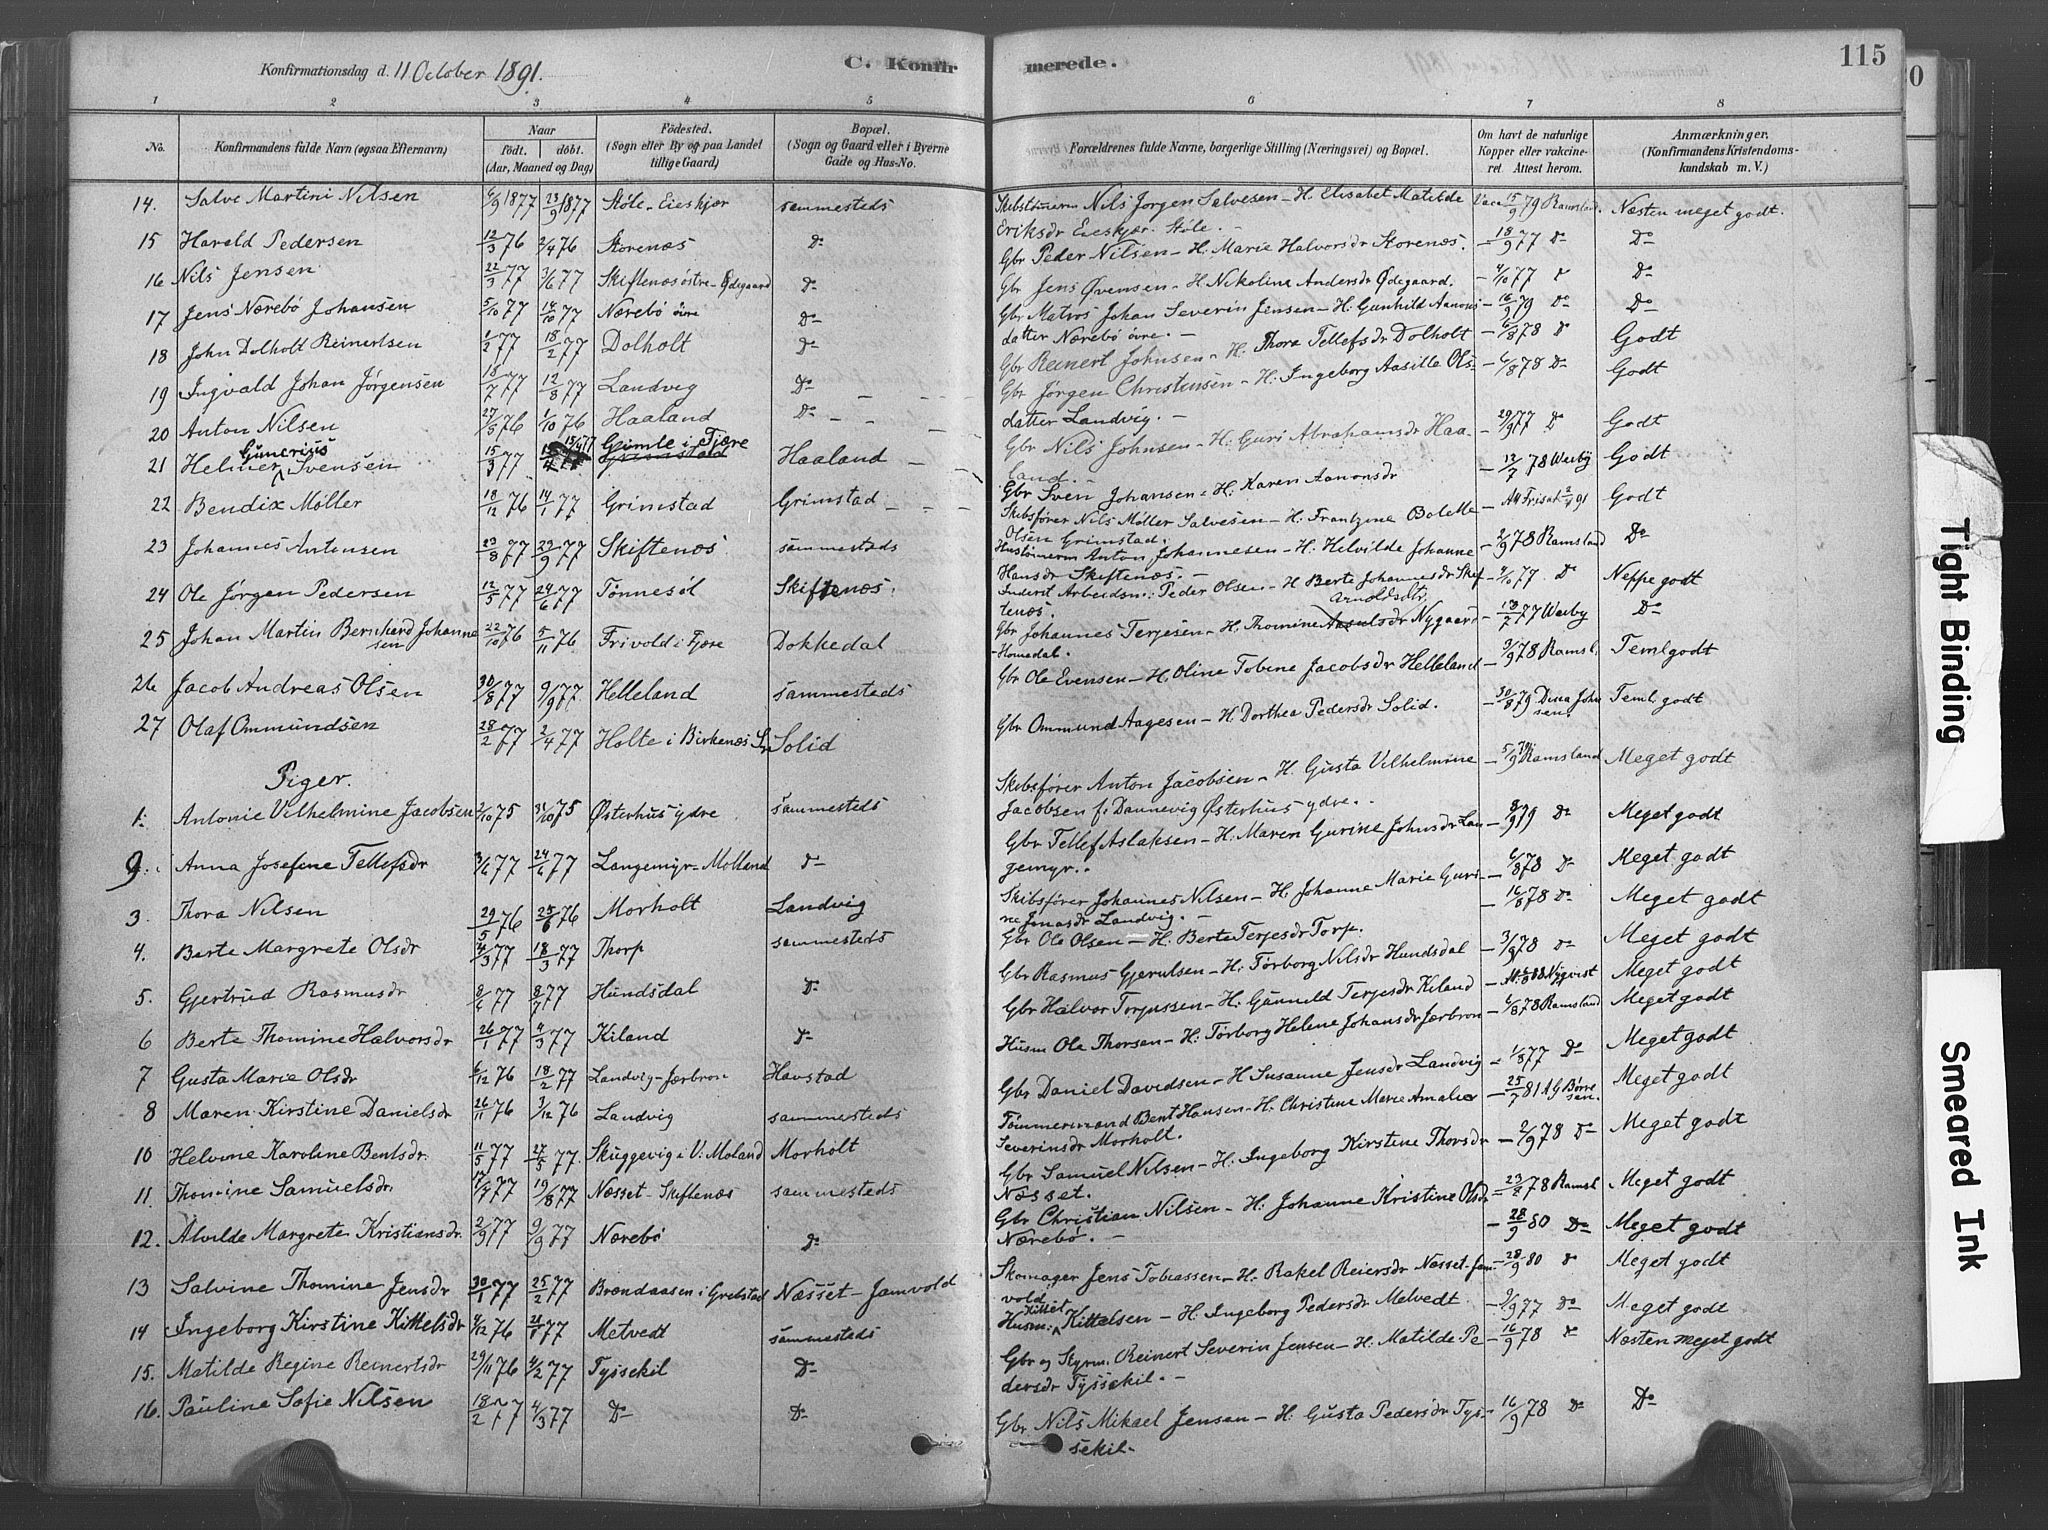 Konfirmationsdag d. 11 October 1891.
C. Konfirmerede.
115
1 2 3 4 5 6 7 8
No.
Konfirmandens fulde Navn (ogsaa Efternavn)
Naar
födt. döbt.
(Aar, Maaned og Dag)
Födested.
(Sogn eller By og paa Landet tillige Gaard)
Bopæl.
(Sogn og Gaard eller i Byerne Gade og Hus-No.
Forældrenes fulde Navne, borgerlige Stilling (Næringsvei) og Bopæl.
Om havt de naturlige Kopper eller vakcineret Attest herom.
Anmærkninger.
(Konfirmandens Kristendomskundskab m. V.)
14. Salve Martini Nilsen 6/9 1877 23/9 1877 Støle-Eieskjær sammesteds Nils Jørgen Salvesen - H. Elisabet Matilde Eriksdr Eieskjær. Støle. - Vacc 15/9 79 Ramsland. Næsten meget godt.
15 Harald Pedersen 12/3 76 2/4 76 Storenæs Do Gbr Peder Nilsen - H. Marie Halvorsdr Storenæs. - 18/9 77 Do Do
16 Nils Jensen 22/3 77 3/6 77 Skiftenæs østre-Ødegaard Do Gbr Jens Øvensen - H. Nikoline Andersdr Ødegaard. - 4/10 77 Do Do
17 Jens Nærebø Johansen 5/10 77 14/10 77 Nærebø övre Do Gbr Matros Johan Severin Jensen - H. Gunhild Aanonsdatter Nærebö övre. - - 16/9 79 Do Do
18 John Dolholt Reinertsen 1/2 77 18/2 77 Dolholt Do Gbr Reinert Johnsen - H. Thora Tellefsdr Dolholt - 6/8 78 Do Godt
19 Ingvald Johan Jørgensen 18/7 77 12/8 77 Landvig Do Gbr Jørgen Christensen - H. Ingeborg Aasille Olsdatter Landvig. - - 6/8 78 Do Godt
20 Anton Nilsen 27/8 76 1/10 76 Haaland Do Gbr Nils Johnsen - H. Guri Abrahamsdr Haaland. - - 29/9 77 Do Godt
21 Helmer Gunerius Svensen 15/3 77 15/4 77 Gimle i Fjære Grimstad Haaland Gbr Sven Johansen - H. Karen Aanonsdr - 12/7 78 Weeby Godt
22 Bendix Møller 18/12 76 14/1 77 Grimstad Grimstad Skibsfører Nils Møller Salvesen - H. Frantzine Bolette Olsen Grimstad. Godt
23 Johannes Antensen 23/8 77 23/9 77 Skiftenæs sammesteds Anton Johannesen - H. Helvilde Johanne Hansdr Skiftenæs. - - 2/9 78 Ramsland Do
24 Ole Jørgen Pedersen 12/5 77 24/6 77 Tønnesøl Skiftenæs. Inderst Arbeidsm.: Peder Olsen - H Berte Johannesdr Skiftenæs. - 4/10 77 Do Neppe godt
25 Johan Martin Bernhard Johannesen 22/10 76 5/11 76 Frivold i Fjære Dokkedal Gbr Johannes Terjesen - H. Thomine Arnoldsdtr. Nygaard - Homedal. - 13/7 77 Weeby Do
26 Jacob Andreas Olsen 30/8 77 9/9 77 Helleland sammesteds Gbr Ole Evensen - H. Oline Tobine Jacobsdr Helleland - 3/9 78 Ramsl. Teml godt
27 Olaf Ommundsen 28/2 77 2/4 77 Holte i Birkenæs Sn Solid Gbr Ommund Aagesen - H. Dorthea Pedersdr Solid. - 30/8 79 Dina Johnsen. Teml godt
Piger.
1. Antonie Vilhelmine Jacobsen 2/10 75 31/10 75 Østerhus ydre sammesteds Skibsfører Anton Jacobsen - H. Gusta Vilhelmine Jacobsen f. Dannevig Østerhus ydre. - 5/9 79 Ramsland Meget godt
9. Anna Josefine Tellefsdr 3/6 77 24/6 77 Langemyr-Molland Do Gbr Tellef Aslaksen - H. Maren Gurine Johnsdr Langemyr. - 8/9 79 Do Meget godt
3. Thora Nilsen 29/5 76 25/6 76 Morholt Landvig Skibsfører Johannes Nilsen - H. Johanne Marie Gurine Jonasdr Landvig. - - 6/8 78 Do Meget godt
4. Berte Margrete Olsdr 2/3 77 18/3 77 Thorp sammesteds Gbr Ole Olsen - H. Berte Terjesdr Torp. - 16/8 78 Do Meget godt
5. Gjertrud Rasmusdr 8/6 77 8/7 77 Hundsdal Do Gbr Rasmus Gjerulsen - H. Torborg Nilsdr Hundsdal - 3/9 78 Do Meget godt
6 Berte Thomine Halvorsdr 26/1 77 4/3 77 Kiland Do Gbr Halvor Torjussen - H. Gunneld Terjesdr Kiland Nyqvist Meget godt
7 Gusta Marie Olsdr 6/12 76 18/2 77 Landvig-Jærbron Havstad Husm Ole Thorsen - H. Torborg Helene Johansdr Jærbron - 6/8 78 Ramsland Meget godt
8 Maren Kirstine Danielsdr 26/11 76 3/12 76 Landvig sammesteds Gbr Daniel Davidsen - H Susanne Jensdr Landvig - 1/8 77 Do Meget godt
10 Helvine Karoline Bentsdr. 11/5 77 27/5 77. Skuggevig i V. Moland Morholt Tömmermand Bent Hansen - H. Christine Marie Amalie Severinsdr Morholt. - 25/7 81 A G Børresen. Meget godt
11. Thomine Samuelsdr. 17/7 77 19/8 77 Næsset-Skiftenæs sammesteds Gbr Samuel Nilsen - H. Ingeborg Kirstine Thorsdr Næsset. - 2/9 78 Do Meget godt
12. Alvilde Margrete Kristiansdr. 2/9 77 9/9 77 Nærebö Do Gbr Christian Nilsen - H. Johanne Kristine Olsdr Nærebø. - - 23/2 78 Ramsl Meget godt
- 28/9 80 Do Meget godt
13 Salvine Thomine Jensdr 30/1 77 25/2 77 Brændaasen i Grebstad Næsset-Jamvold Skomager Jens Tobiassen - H. Rakel Reiersdr Næsset-Jamvold - 28/9 80 Do Meget godt
14 Ingeborg Kirstine Kittelsdr 4/12 76 21/1 77 Metvedt sammesteds Husm: Kittel Kittelsen - H. Ingeborg Pedersdr Melvedt. - 9/9 77 Do Meget godt
15. Matilde Regine Reinertsdr 29/11 76 4/2 77 Tyssekil Do Gbr og Styrm. Reinert Severin Jensen - H. Matilde Pedersdr Tyssekil. - - 16/9 78 Do Næsten meget godt
16. Pauline Sofie Nilsen 18/2 77 4/3 77 Do Do Gbr Nils Mikael Jensen - H. Gusta Pedersdr Tyssekil - - 16/9 78 Do Do
Tight Binding
Smeared Ink